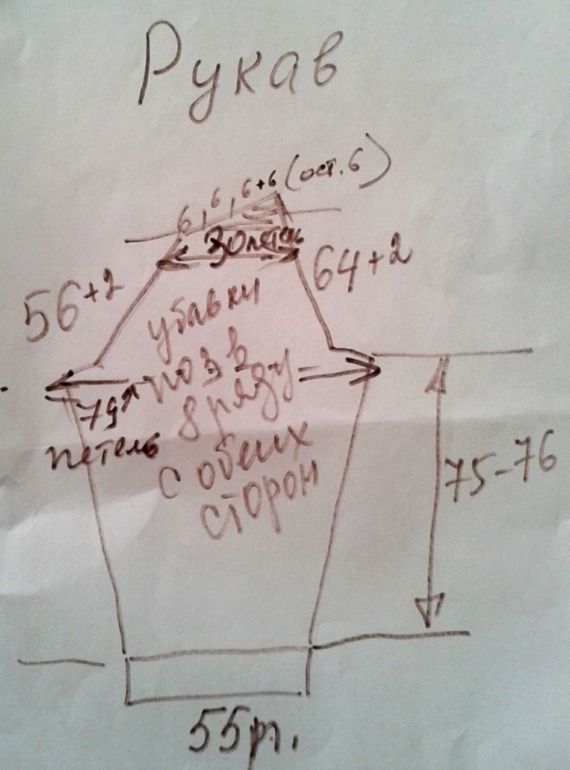 Рукав
6, 6, 6+6 (ост. 6)
30 петель
56+2
64+2
убавки
по 3 в
8 ряду
с обеих
сторон
79
петель
75-76
55 рт.